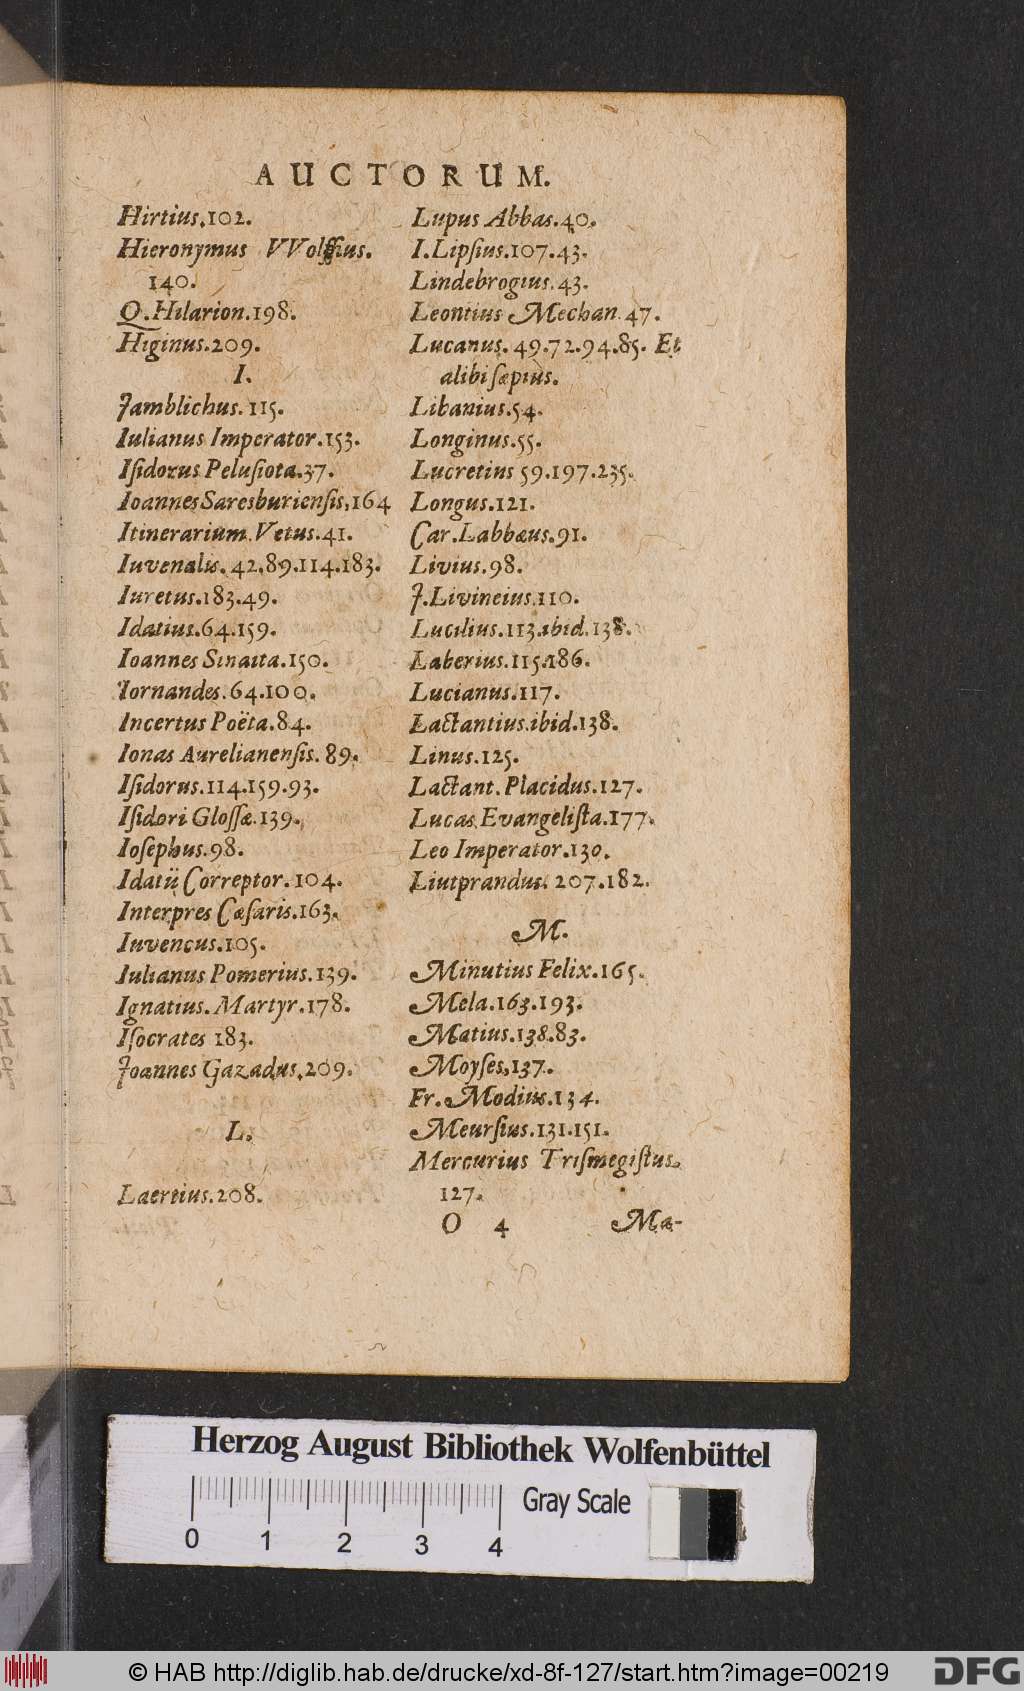 AUCTORUM.
Hirtius.102.
Hieronymus VVolffius.
140.
Q.Hilarion.198.
Higinus.209.
I.
Jamblichus.115.
Iulianus Imperator.153.
Iſidorus Peluſiota.37.
Ioannes Saresburienſis.164
Itinerarium Vetus.41.
Iuvenalis. 42.89.114.183.
Iuretus.183.49.
Idatius.64.159.
Ioannes Sinaita.150.
Iornandes.64.100.
Incertus Poëta.84.
Ionas Aurelianenſis. 89.
Iſidorus.114.159.93.
Iſidori Gloſſæ.139.
Ioſephus.98.
Idatii Correptor.104.
Interpres Cæſaris.163.
Iuvencus.105.
Iulianus Pomerius.139.
Ignatius. Martyr.178.
Iſocrates 183.
Joannes Gazadus.209.
L.
Laertius.208.
Lupus Abbas.40.
I.Lipſius.107.43.
Lindebrogius.43.
Leontius Mechan.47.
Lucanus. 49.72.94.85. Et
alibi ſæpius.
Libanius.54.
Longinus.55.
Lucretius 59.197.235.
Longus.121.
Car.Labbæus.91.
Livius.98.
J.Livineius.110.
Lucilius.113.ibid.138.
Laberius.115.186.
Lucianus.117.
Lactantius.ibid.138.
Linus.125.
Lactant. Placidus.127.
Lucas Evangeliſta.177.
Leo Imperator.130.
Liutprandus. 207.182.
M.
Minutius Felix.165.
Mela.163.193.
Matius.138.83.
Moyſes.137.
Fr. Modius.134.
Meurſius.131.151.
Mercurius Triſmegiſtus.
127.
O 4 Ma-
Herzog August Bibliothek Wolfenbüttel
Gray Scale
0 1 2 3 4
© HAB http://diglib.hab.de/drucke/xd-8f-127/start.htm?image=00219
DFG